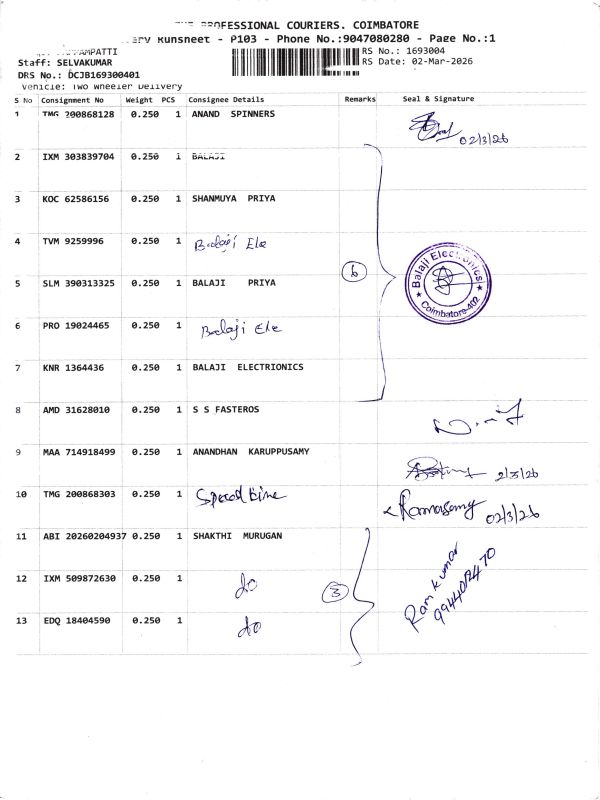 PROFESSIONAL COURIERS. COIMBATORE
Runsheet - P103 - Phone No.:9047080280 - Page No.:1
Staff: SELVAKUMAR
DRS No.: DCJB169300401
Vehicle: Two Wheeler Delivery
RS No.: 1693004
RS Date: 02-Mar-2026
S No Consignment No Weight PCS Consignee Details Remarks Seal & Signature
1 TMG 200868128 0.250 1 ANAND SPINNERS 02/3/26
2 IXM 303839704 0.250 1 BALAJI
3 KOC 62586156 0.250 1 SHANMUYA PRIYA
4 TVM 9259996 0.250 1 Balaji Ele
5 SLM 390313325 0.250 1 BALAJI PRIYA
6 PRO 19024465 0.250 1 Balaji Ele
7 KNR 1364436 0.250 1 BALAJI ELECTRIONICS
6
Balaji Electronics
Coimbatore-402
8 AMD 31628010 0.250 1 S S FASTEROS
9 MAA 714918499 0.250 1 ANANDHAN KARUPPUSAMY 2/3/26
10 TMG 200868303 0.250 1 Ramasamy 02/3/26
11 ABI 20260204937 0.250 1 SHAKTHI MURUGAN
12 IXM 509872630 0.250 1 do
13 EDQ 18404590 0.250 1 do
3
Ram kumar